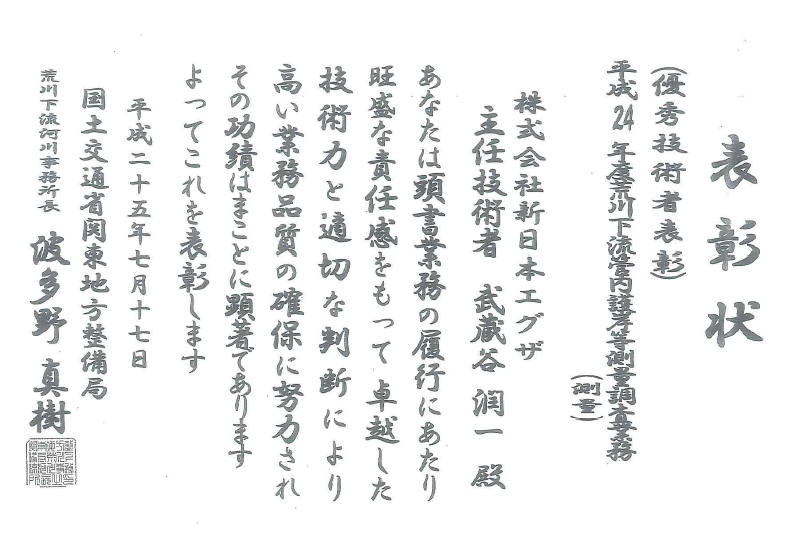 表彰状
(優秀技術者表彰)
平成24年度荒川下流管内護岸等測量調査業務
(測量)
株式会社新日本エグザ
主任技術者 武蔵谷 潤一 殿
あなたは頭書業務の履行にあたり
旺盛な責任感をもって卓越した
技術力と適切な判断により
高い業務品質の確保に努力され
その功績はまことに顕著であります
よってこれを表彰します
平成二十五年七月十七日
国土交通省関東地方整備局
荒川下流河川事務所長 波多野 真樹